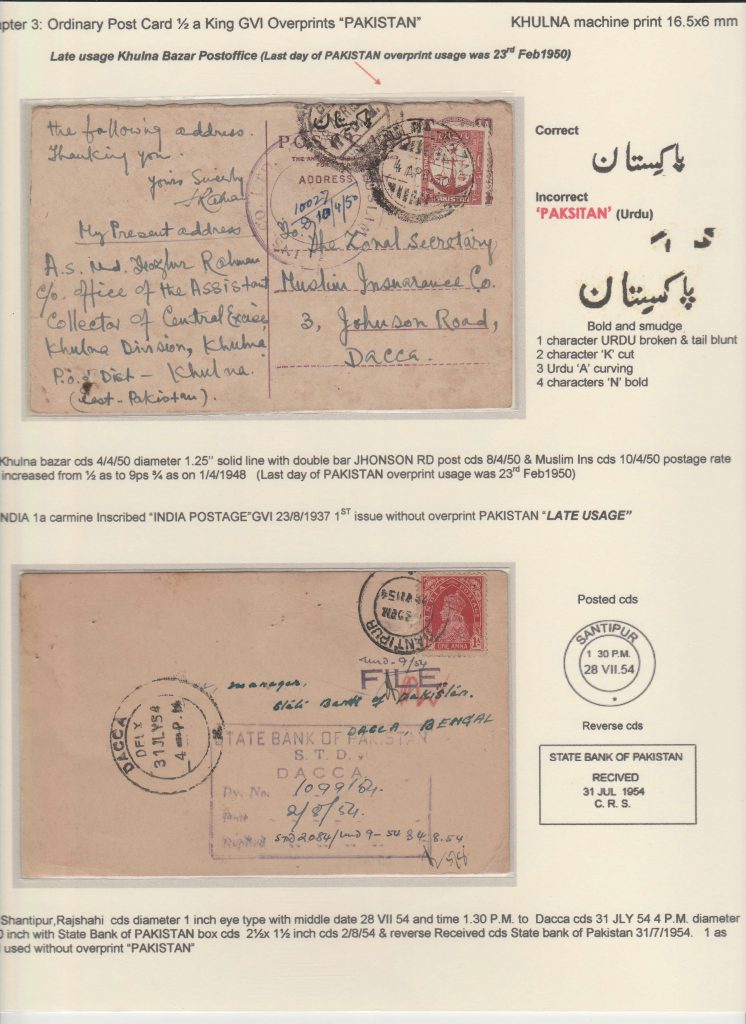 pter 3: Ordinary Post Card ½ a King GVI Overprints “PAKISTAN”
KHULNA machine print 16.5x6 mm
Late usage Khulna Bazar Postoffice (Last day of PAKISTAN overprint usage was 23rd Feb1950)
the following address.
Thanking you.
Yours Sincerely
My Present address
A.S. Md. Rahman
C/o. Office of the Assistant
Collector of Central Excise,
Khulna Division, Khulna
P.O. & Dist – Khulna.
(East-Pakistan).
ADDRESS
10027
10/4/50
4 APR 50
PAKISTAN
The Zonal Secretary
Muslim Insurance Co.
3, Johnson Road,
Dacca.
Correct
پاکستان
Incorrect
‘PAKSITAN’ (Urdu)
پاکستان
Bold and smudge
1 character URDU broken & tail blunt
2 character ‘K’ cut
3 Urdu ‘A’ curving
4 characters ‘N’ bold
Khulna bazar cds 4/4/50 diameter 1.25” solid line with double bar JHONSON RD post cds 8/4/50 & Muslim Ins cds 10/4/50 postage rate
increased from ½ as to 9ps ¾ as on 1/4/1948 (Last day of PAKISTAN overprint usage was 23rd Feb1950)
NDIA 1a carmine Inscribed “INDIA POSTAGE”GVI 23/8/1937 1ST issue without overprint PAKISTAN “LATE USAGE”
SANTIPUR
ONE ANNA
FILE
Manager,
State Bank of Pakistan.
DACCA, BENGAL
DACCA
DELY
31JLY54
4 P.M
STATE BANK OF PAKISTAN
S.T.D.
DACCA
1099/54.
2/8/54.
Posted cds
SANTIPUR
1 30 P.M.
28 VII.54
Reverse cds
STATE BANK OF PAKISTAN
RECIVED
31 JUL 1954
C. R. S.
Shantipur,Rajshahi cds diameter 1 inch eye type with middle date 28 VII 54 and time 1.30 P.M. to Dacca cds 31 JLY 54 4 P.M. diameter
inch with State Bank of PAKISTAN box cds 2½x 1½ inch cds 2/8/54 & reverse Received cds State bank of Pakistan 31/7/1954. 1 as
used without overprint “PAKISTAN”